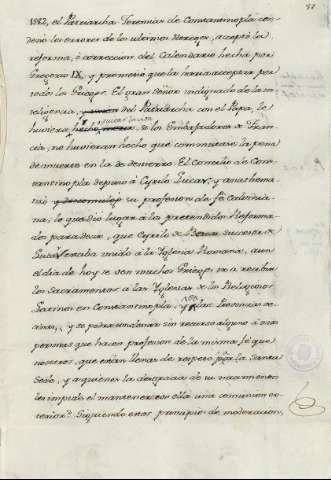 52
1582, el Patriarcha Jeremias de Constantinopla con-
denó los errores de los ultimos Hereges, aceptó la
reforma, ó correccion del Calendario hecha por
Gregorio IX, y prometió que la haria aceptar por
todos los Griegos. El gran Señor indignado de la in-
teligencia, del Patriarcha con el Papa, le
huviera quitar la vida hecho si los Embajadores de Fran-
cia, no huvieran hecho que conmutase la pena
de muerte en la de destierro. El Concilio de Cons-
tantinopla depuso á Cyrilo Lucar, y anathema-
tizó y descomulgó su profesion de fé calvinia-
na, lo que dió lugar á los pretendidos Reforma-
dos para decir, que Cyrilo de Berea sucesor de
Lucar estaba unido á la Yglesia Romana, aun
el dia de hoy se ven muchos Griegos, ir a recibir
los Sacramentos á las Yglesias de los Religiosos
Latinos en Constantinopla, y en las Provincias ve-
cinas, y se podrá condenar sin recurso alguno á esas
personas que hacen profesion de la misma fé que
nosotros, que están llenas de respeto por la Santa
Sede, y a quienes la desgracia de su nacimiento
les impide el mantener con ella una comunion ex-
terior? Siguiendo estos principios de moderacion,